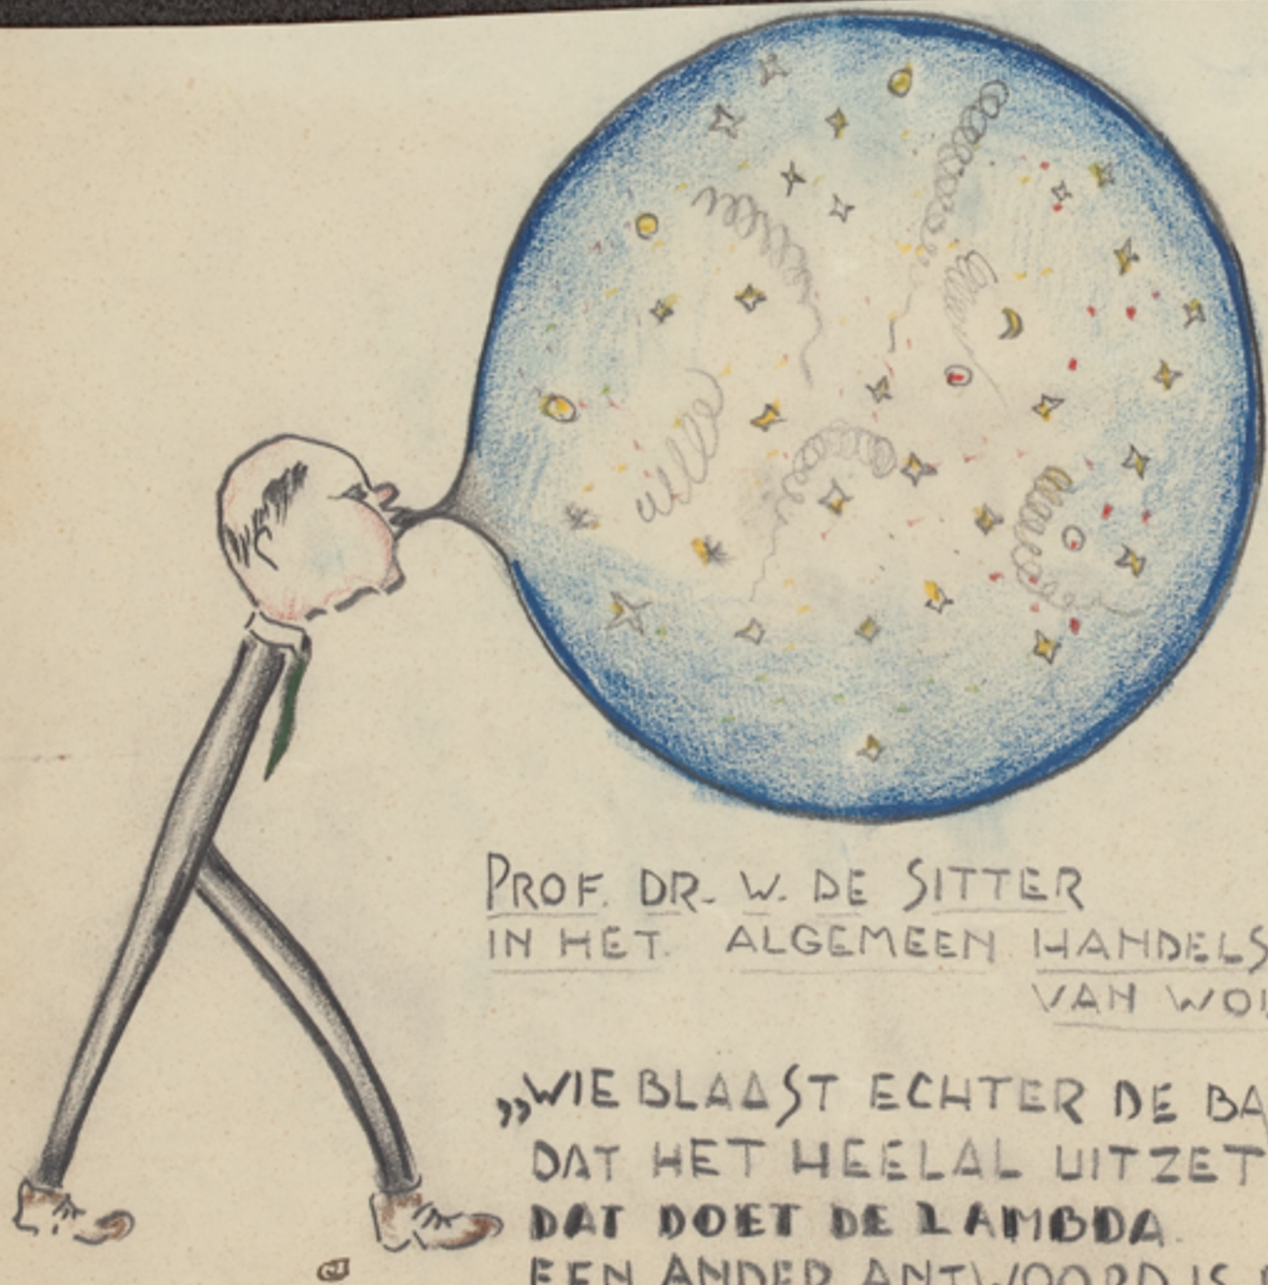 PROF. DR. W. DE SITTER
IN HET. ALGEMEEN HANDELS
VAN WO
„WIE BLAAST ECHTER DE BA
DAT HET HEELAL UITZET
DAT DOET DE LAMBDA.
EEN ANDER ANTWOORD IS